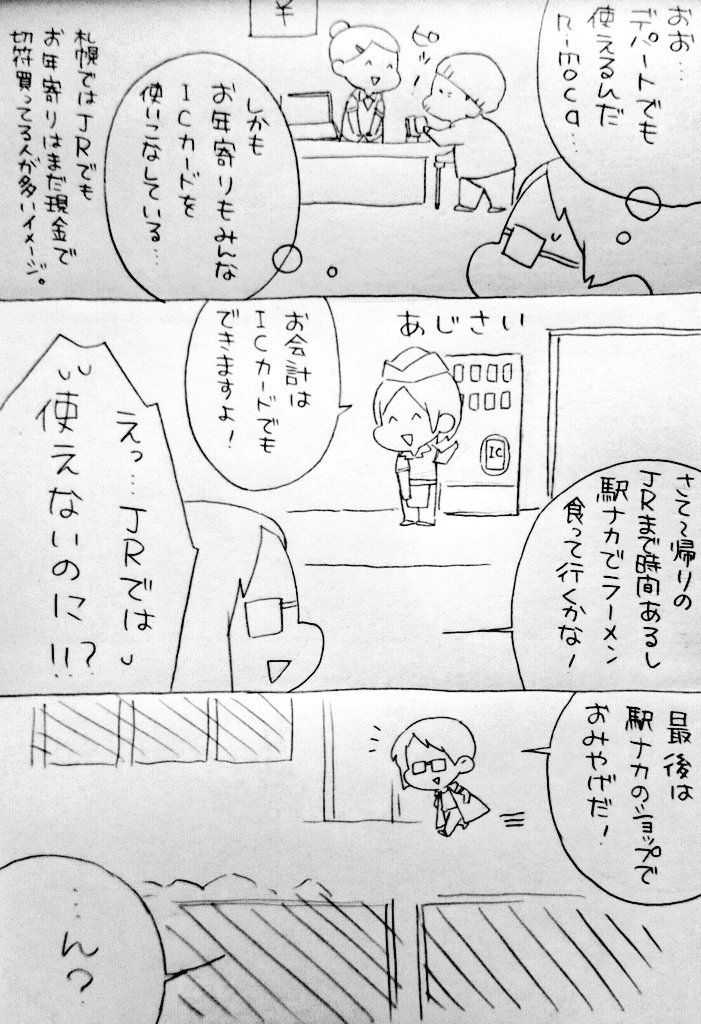 おお…
デパートでも
使えるんだ
nimoca…
¥
ピッ!
しかも
お年寄りもみんな
ICカードを
使いこなしている…
札幌ではJRでも
お年寄りはまだ現金で
切符買ってる人が多いイメージ。
さて~帰りの
JRまで時間あるし
駅ナカでラーメン
食って行くかな!
あじさい
IC
お会計は
ICカードでも
できますよ!
えっ…JRでは
使えないのに!!?
最後は
駅ナカのショップで
おみやげだ!
…ん?